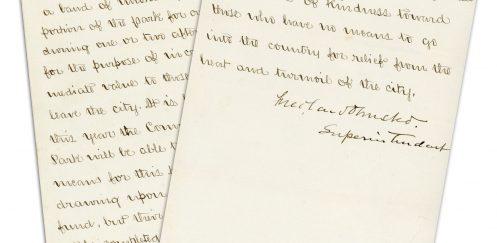 a band of
portion of the park for
during one or two after
for the purpose of
mediate value to those
leave the city. It is
this year the Com
Park will be able t
means for this
drawing upon
fund, but
completed
of kindness toward
those who have no means to go
into the country for relief from the
heat and turmoil of the city.
Fred. Law Olmsted.
Superintendent